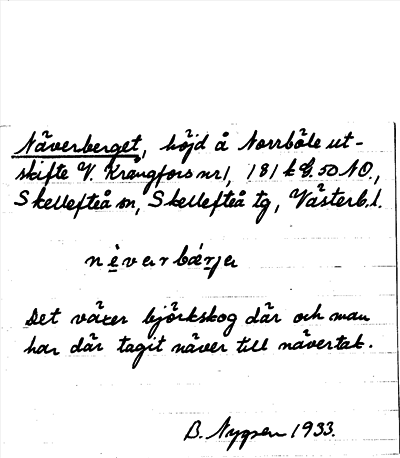 Näverberget, höjd å Norrböle ut-
skifte V. Krångfors nr 1, 181 k G. 50 NO.,
Skellefteå sn, Skellefteå tg, Västerb. l.
nèvarbærja
Det växer björkskog där och man
har där tagit näver till nävertak.
B. Nygren 1933.